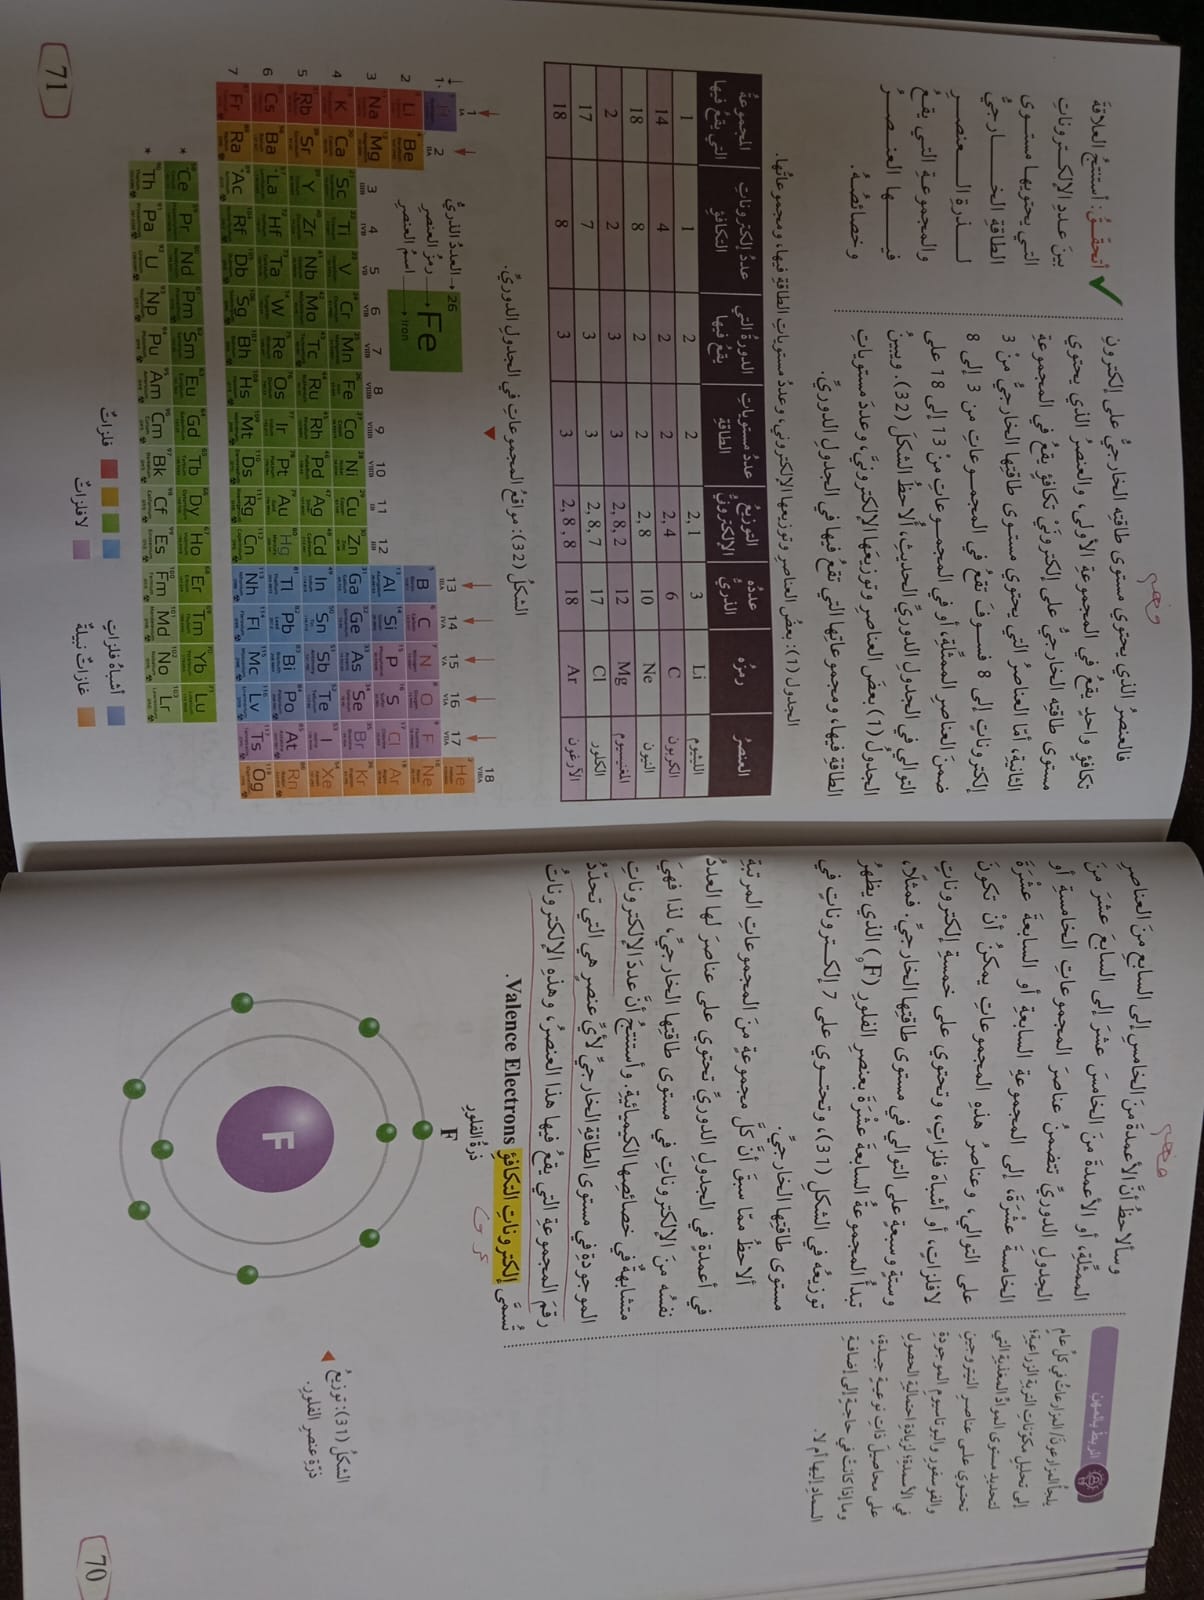 وسألاحظُ أنَّ الأعمدةَ منَ الخامسِ إلى السابعِ منَ العناصرِ
الممثّلةِ، أو الأعمدةَ منَ الخامسَ عشرَ إلى السابعَ عشرَ منَ
الجدولِ الدوريِّ تتضمنُ عناصرَ المجموعاتِ الخامسةِ أو
الخامسةَ عشْرَةَ، إلى المجموعةِ السابعةِ أو السابعةَ عشْرَةَ
على التوالي، وعناصرُ هذهِ المجموعاتِ يمكنُ أنْ تكونَ
لافلزاتٍ، أو أشباهَ فلزاتٍ، وتحتوي على خمسةِ إلكتروناتٍ
وستةٍ وسبعةٍ على التوالي في مستوى طاقتِها الخارجيِّ. فمثلًا،
تبدأُ المجموعةُ السابعةَ عشْرَةَ بعنصرِ الفلورِ (₉F) الذي يظهرُ
توزيعُه في الشكلِ (31)، وتحتوي على 7 إلكتروناتٍ في
مستوى طاقتِها الخارجيِّ.
ألاحظُ ممّا سبقَ أنَّ كلَّ مجموعةٍ منَ المجموعاتِ المرتبةِ
في أعمدةٍ في الجدولِ الدوريِّ تحتوي على عناصرَ لها العددُ
نفسُه منَ الإلكتروناتِ في مستوى طاقتِها الخارجيِّ، لذا فهيَ
متشابهةٌ في خصائصِها الكيميائيةِ. وأستنتجُ أنَّ عددَ الإلكتروناتِ
الموجودةِ في مستوى الطاقةِ الخارجيِّ لأيِّ عنصرٍ هي التي تحدّدُ
رقمَ المجموعةِ التي يقعُ فيها هذا العنصرُ، وهذهِ الإلكتروناتُ
تُسمّى إلكتروناتِ التكافؤِ Valence Electrons.
الربطُ بالمهنِ
يلجأُ المزارعونَ/ المزارعاتُ في كلِّ عامٍ
إلى تحليلِ مكوّناتِ التربةِ الزراعيةِ؛
لتحديدِ مستوى الموادِّ المغذيةِ التي
تحتوي على عناصرِ النيتروجينِ
والفوسفورِ والبوتاسيومِ الموجودةِ
في الأسمدةِ؛ لزيادةِ احتماليةِ الحصولِ
على محاصيلَ ذاتِ نوعيةٍ جيدةٍ،
وما إذا كانتْ في حاجةٍ إلى إضافةِ
السمادِ إليها أم لا.
F
ذرةُ الفلورِ
F
الشكلُ (31): توزيعُ
ذرّةِ عنصرِ الفلورِ.
70
فالعنصرُ الذي يحتوي مستوى طاقتِه الخارجيُّ على إلكترونِ
تكافؤٍ واحدٍ يقعُ في المجموعةِ الأولى، والعنصرُ الذي يحتوي
مستوى طاقتِه الخارجيُّ على إلكترونَيْ تكافؤٍ يقعُ في المجموعةِ
الثانيةِ، أمّا العناصرُ التي يحتوي مستوى طاقتِها الخارجيُّ منْ 3
إلكتروناتٍ إلى 8 فسوفَ تقعُ في المجموعاتِ من 3 إلى 8
ضمنَ العناصرِ الممثّلةِ، أو في المجموعاتِ منْ 13 إلى 18 على
التوالي في الجدولِ الدوريِّ الحديثِ، ألاحظُ الشكلَ (32). ويبيّنُ
الجدولُ (1) بعضَ العناصرِ وتوزيعَها الإلكترونيَّ، وعددَ مستوياتِ
الطاقةِ فيها، ومجموعاتِها التي تقعُ فيها في الجدولِ الدوريِّ.
أتحقّقُ: أستنتجُ العلاقةَ
بينَ عددِ الإلكتروناتِ
التي يحتويها مستوى
الطاقةِ الخارجيُّ
لذرةِ العنصرِ
والمجموعةِ التي يقعُ
فيها العنصرُ
وخصائصُهُ.
الجدول (1): بعضُ العناصرِ وتوزيعُها الإلكترونيُّ، وعددُ مستوياتِ الطاقةِ فيها، ومجموعاتُها.
العنصرُ رمزُه عددُه الذريُّ التوزيعُ الإلكترونيُّ عددُ مستوياتِ الطاقةِ الدورةُ التي يقعُ فيها عددُ إلكتروناتِ التكافؤِ المجموعةُ التي يقعُ فيها
الليثيوم Li 3 2, 1 2 2 1 1
الكربون C 6 2, 4 2 2 4 14
النيون Ne 10 2, 8 2 2 8 18
المغنيسيوم Mg 12 2, 8, 2 3 3 2 2
الكلور Cl 17 2, 8, 7 3 3 7 17
الأرغون Ar 18 2, 8, 8 3 3 8 18
الشكلُ (32): مواقعُ المجموعاتِ في الجدولِ الدوريِّ.
العددُ الذريُّ 26
رمزُ العنصرِ Fe
اسمُ العنصرِ Iron
1 2 3 4 5 6 7 8 9 10 11 12 13 14 15 16 17 18
1 H He
2 Li Be B C N O F Ne
3 Na Mg Al Si P S Cl Ar
4 K Ca Sc Ti V Cr Mn Fe Co Ni Cu Zn Ga Ge As Se Br Kr
5 Rb Sr Y Zr Nb Mo Tc Ru Rh Pd Ag Cd In Sn Sb Te I Xe
6 Cs Ba La Hf Ta W Re Os Ir Pt Au Hg Tl Pb Bi Po At Rn
7 Fr Ra Ac Rf Db Sg Bh Hs Mt Ds Rg Cn Nh Fl Mc Lv Ts Og
* Ce Pr Nd Pm Sm Eu Gd Tb Dy Ho Er Tm Yb Lu
* Th Pa U Np Pu Am Cm Bk Cf Es Fm Md No Lr
فلزاتٌ
أشباهُ فلزاتٍ
لافلزاتٌ
غازاتٌ نبيلةٌ
71